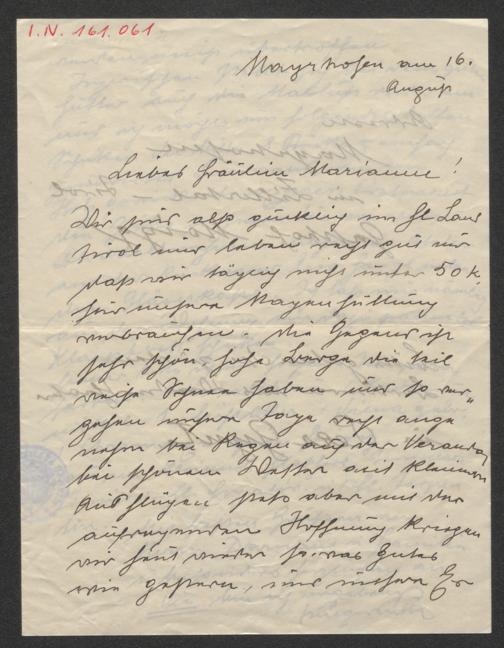 I.N. 161.061
Mayrhofen am 16.
August
Liebes Fräulein Marianne!
Wir sind also glücklich im hl. Land
Tirol und leben recht gut nur
daß wir täglich nicht unter 50 K.
für unsere Magenfüllung
verbrauchen. Die Gegend ist
sehr schön, hohe Berge die teil
weise Schnee haben und so ver„
gehen unsere Tage recht ange
nehm bei Regen auf der Veranda,
bei schönem Wetter mit kleinen
Ausflügen stets aber mit der
aufregenden Hoffnung kriegen
wir heut wieder so was Gutes
wie gestern, und unsere Er